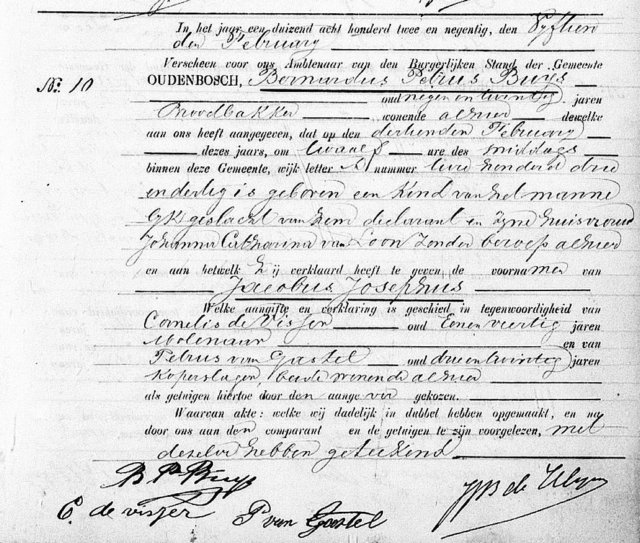 In het jaar een duizend acht honderd twee en negentig, den Vyftien
den February
Verscheen voor ons Ambtenaar van den Burgerlijken Stand der Gemeente
No. 10 OUDENBOSCH, Bernardus Petrus Buys
oud negen en twintig jaren
Broodbakker wonende alhier dewelke
aan ons heeft aangegeven, dat op den dertienden February
dezes jaars, om twaalf ure des middags
binnen deze Gemeente, wijk letter A nummer twee honderd drie
en dertig is geboren een kind van het manne
lyk geslacht van hem declarant en zyne huisvrouw
Johanna Catharina van Loon zonder beroep alhier
en aan hetwelk hij verklaard heeft te geven de voornamen van
Jacobus Josephus
Welke aangifte en verklaring is geschied in tegenwoordigheid van
Cornelis de Visser oud Eenenveertig jaren
Molenaar en van
Petrus van Gastel oud drieentwintig jaren
Koperslager, beide wonende alhier
als getuigen hiertoe door den aangever gekozen.
Waarvan akte: welke wij dadelijk in dubbel hebben opgemaakt, en na
door ons aan den comparant en de getuigen te zijn voorgelezen, met
dezelve hebben geteekend
B P Buys
C. de visser P van Gastel